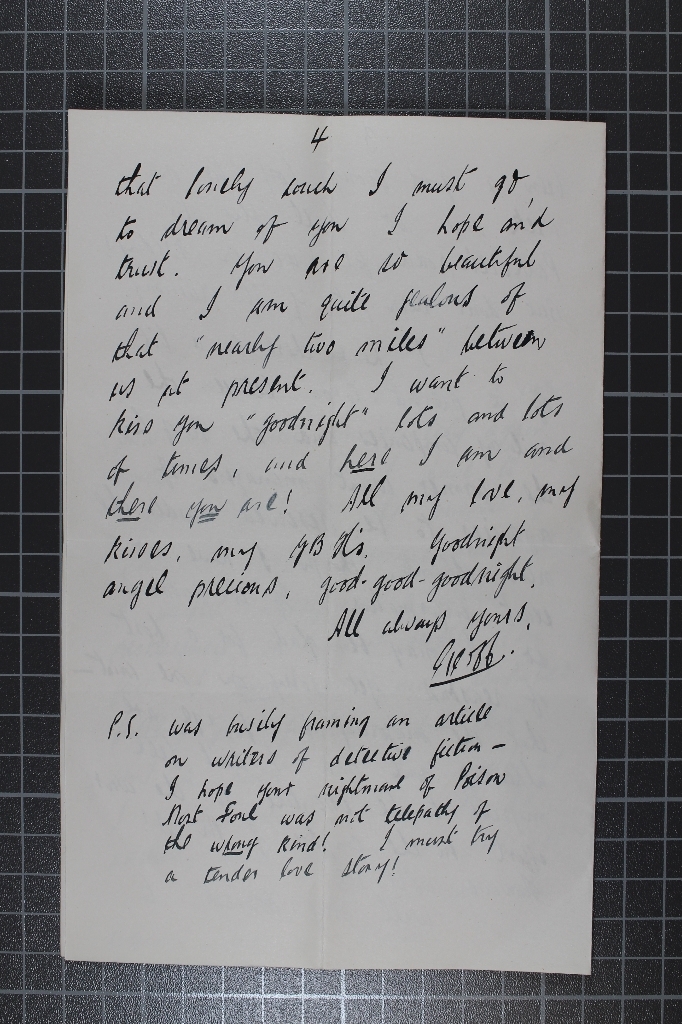 4
that lonely couch I must go
to dream of you I hope and
trust. You are so beautiful
and I am quite jealous of
that "nearly two miles" between
us at present. I want to
kiss you "goodnight" lots and lots
of times, and here I am and
there you are! All my love, my
kisses, my GBHs. Goodnight
angel precious, good-good-goodnight.
All always yours,
Geoff.
P.S. was busily framing an article
on writers of detective fiction –
I hope your nightmare of Poison
Most Foul was not telepathy of
the wrong kind! I must try
a tender love story!